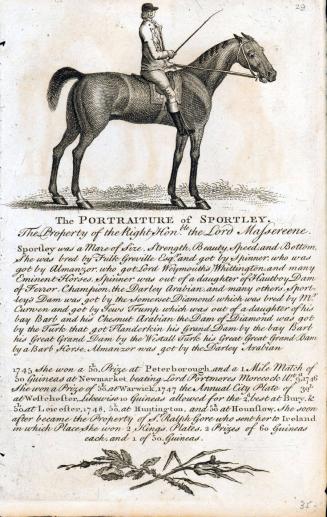 29
The PORTRAITURE of SPORTLEY,
The Property of the Right Hon.ble the Lord Massereene.
Sportley was a Mare of Size, Strength, Beauty, Speed, and Bottom,
She was bred by Fulk Greville Esq.r and got by Spinner, who was
got by Almanzor, who got Lord Weymouths Whittington and many
Eminent Horses, Spinner was out of a daughter of Hautboy, Dam
of Terror, Champion, the Darley Arabian, and many others, Sport-
leys Dam was got by the Somerset Diamond which was bred by Mr.
Curven and got by Jews Trump which was out of a daughter of his
bay Barb and his Chesnut Arabian the Dam of Diamond was got
by the Turk that got Flanderkin his Grand Dam by the bay Barb
his Great Grand Dam by the Wistall Turk his Great Great Grand Dam
by a Barb Horse, Almanzor was got by the Darley Arabian
1745 She won a 50. Prize at Peterborough, and a 1 Mile Match of
50 Guineas at Newmarket, beating Lord Portmores Morocko 1746
She won a Prize of 50. at Warwick, 1747 the Annual City Plate of
at Westchester, Likewise 10 Guineas allowed for the 2.d best at Bury, &
50. at Leicester, 1748, 50. at Huntington, and 50 at Hounslow, She soon
after became the Property of S.r Ralph Gore who sent her to Ireland
in which Place She won 2 Kings Plates, 2 Prizes of 60 Guineas
each, and 1 of 30. Guineas.
35-